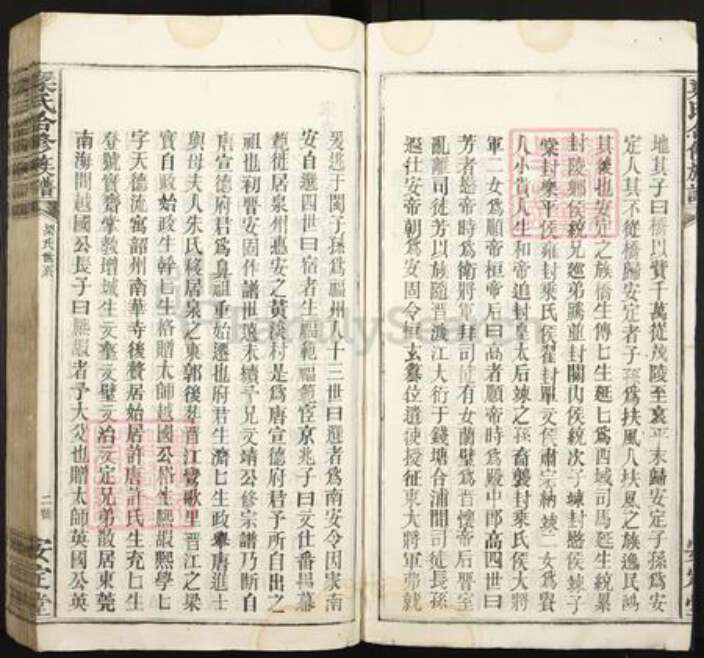 地其子曰橋以貲千萬從茂陵至哀平末歸安定子孫爲安
定人其不從橋歸安定者子孫爲扶風人扶風之族逸民鴻
其後也安定之族橋生傳七生延七爲西域司馬延生統累
封陵鄉侯統兄巡弟騰並封關內侯統次子竦封愍侯竦子
棠封樂平侯雍封乘氏侯翟封單父侯肅宗納竦二女爲貴
人小貴人生和帝追封皇太后竦之孫商襲封乘氏侯大將
軍二女爲順帝桓帝后曰高者順帝時爲殿中郎高四世曰
芳者愍帝時爲衛將軍拜司徒有女蘭璧爲晋懷帝后晋室
亂離司徒芳以族隨晋渡江大衍于錢塘合浦間司徒長孫
遐仕安帝朝爲安固令桓玄簒位遣使授征東大將軍弗就
爰逃于閩子孫爲福州人十三世曰選者爲南安令因家南
安自選四世曰宿者生福範福範官京兆子曰文仕番禺幕
尊徙居泉州惠安之黃溪村是爲唐宣德府君予所自出之
祖也初晋安固作譜世遠未續予兄文靖公修宗譜乃斷自
唐宣德府君爲鼻祖重始遷也府君生濟七生政舉唐進士
與母夫人朱氏移居泉之東郭後葬晋江鸞歌里晋江之梁
實自政始政生幹七生格贈太師越國公格生熙嘏熙學七
字天德流寓韶州南華寺後贅居始居許唐許氏生充七生
登號賓齋掌教增城生文奎文璧文冶文定兄弟散居東莞
南海間越國公長子曰熙嘏者予大父也贈太師英國公英
梁氏合修族譜
梁氏世系
安定堂